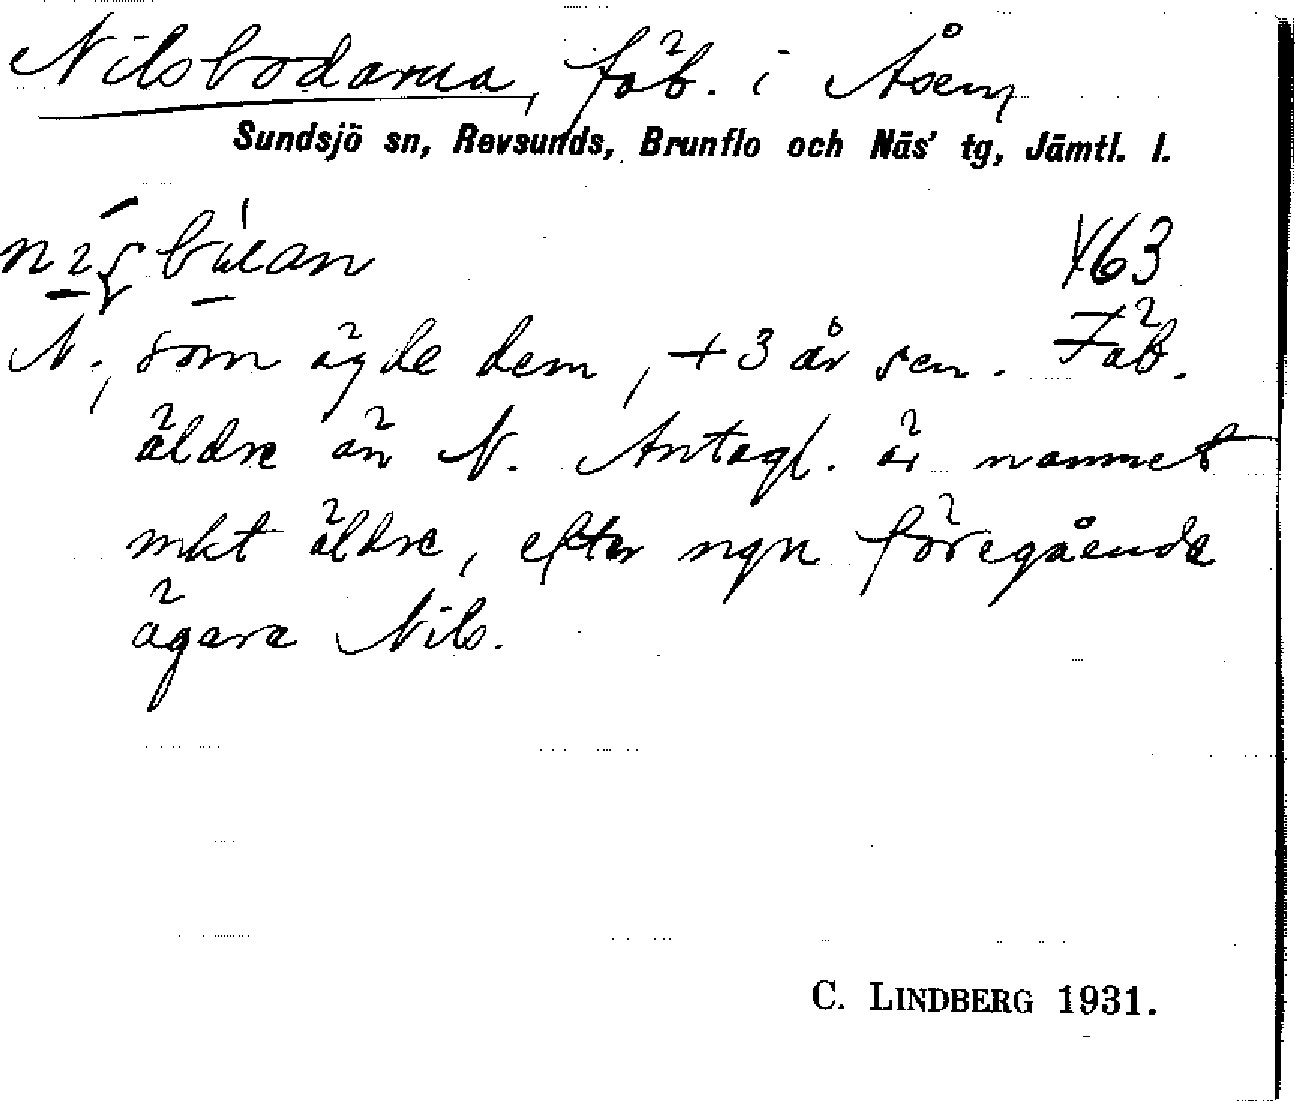 Nilsbodarna, fäb. i Åsen,
Sundsjö sn, Revsunds, Brunflo och Näs' tg, Jämtl. l.
463
N., som ägde dem, + 3 år sen. Fäb.
äldre än N. Antagl. är namnet
mkt äldre, efter ngn föregående
ägare Nils.
C. LINDBERG 1931.